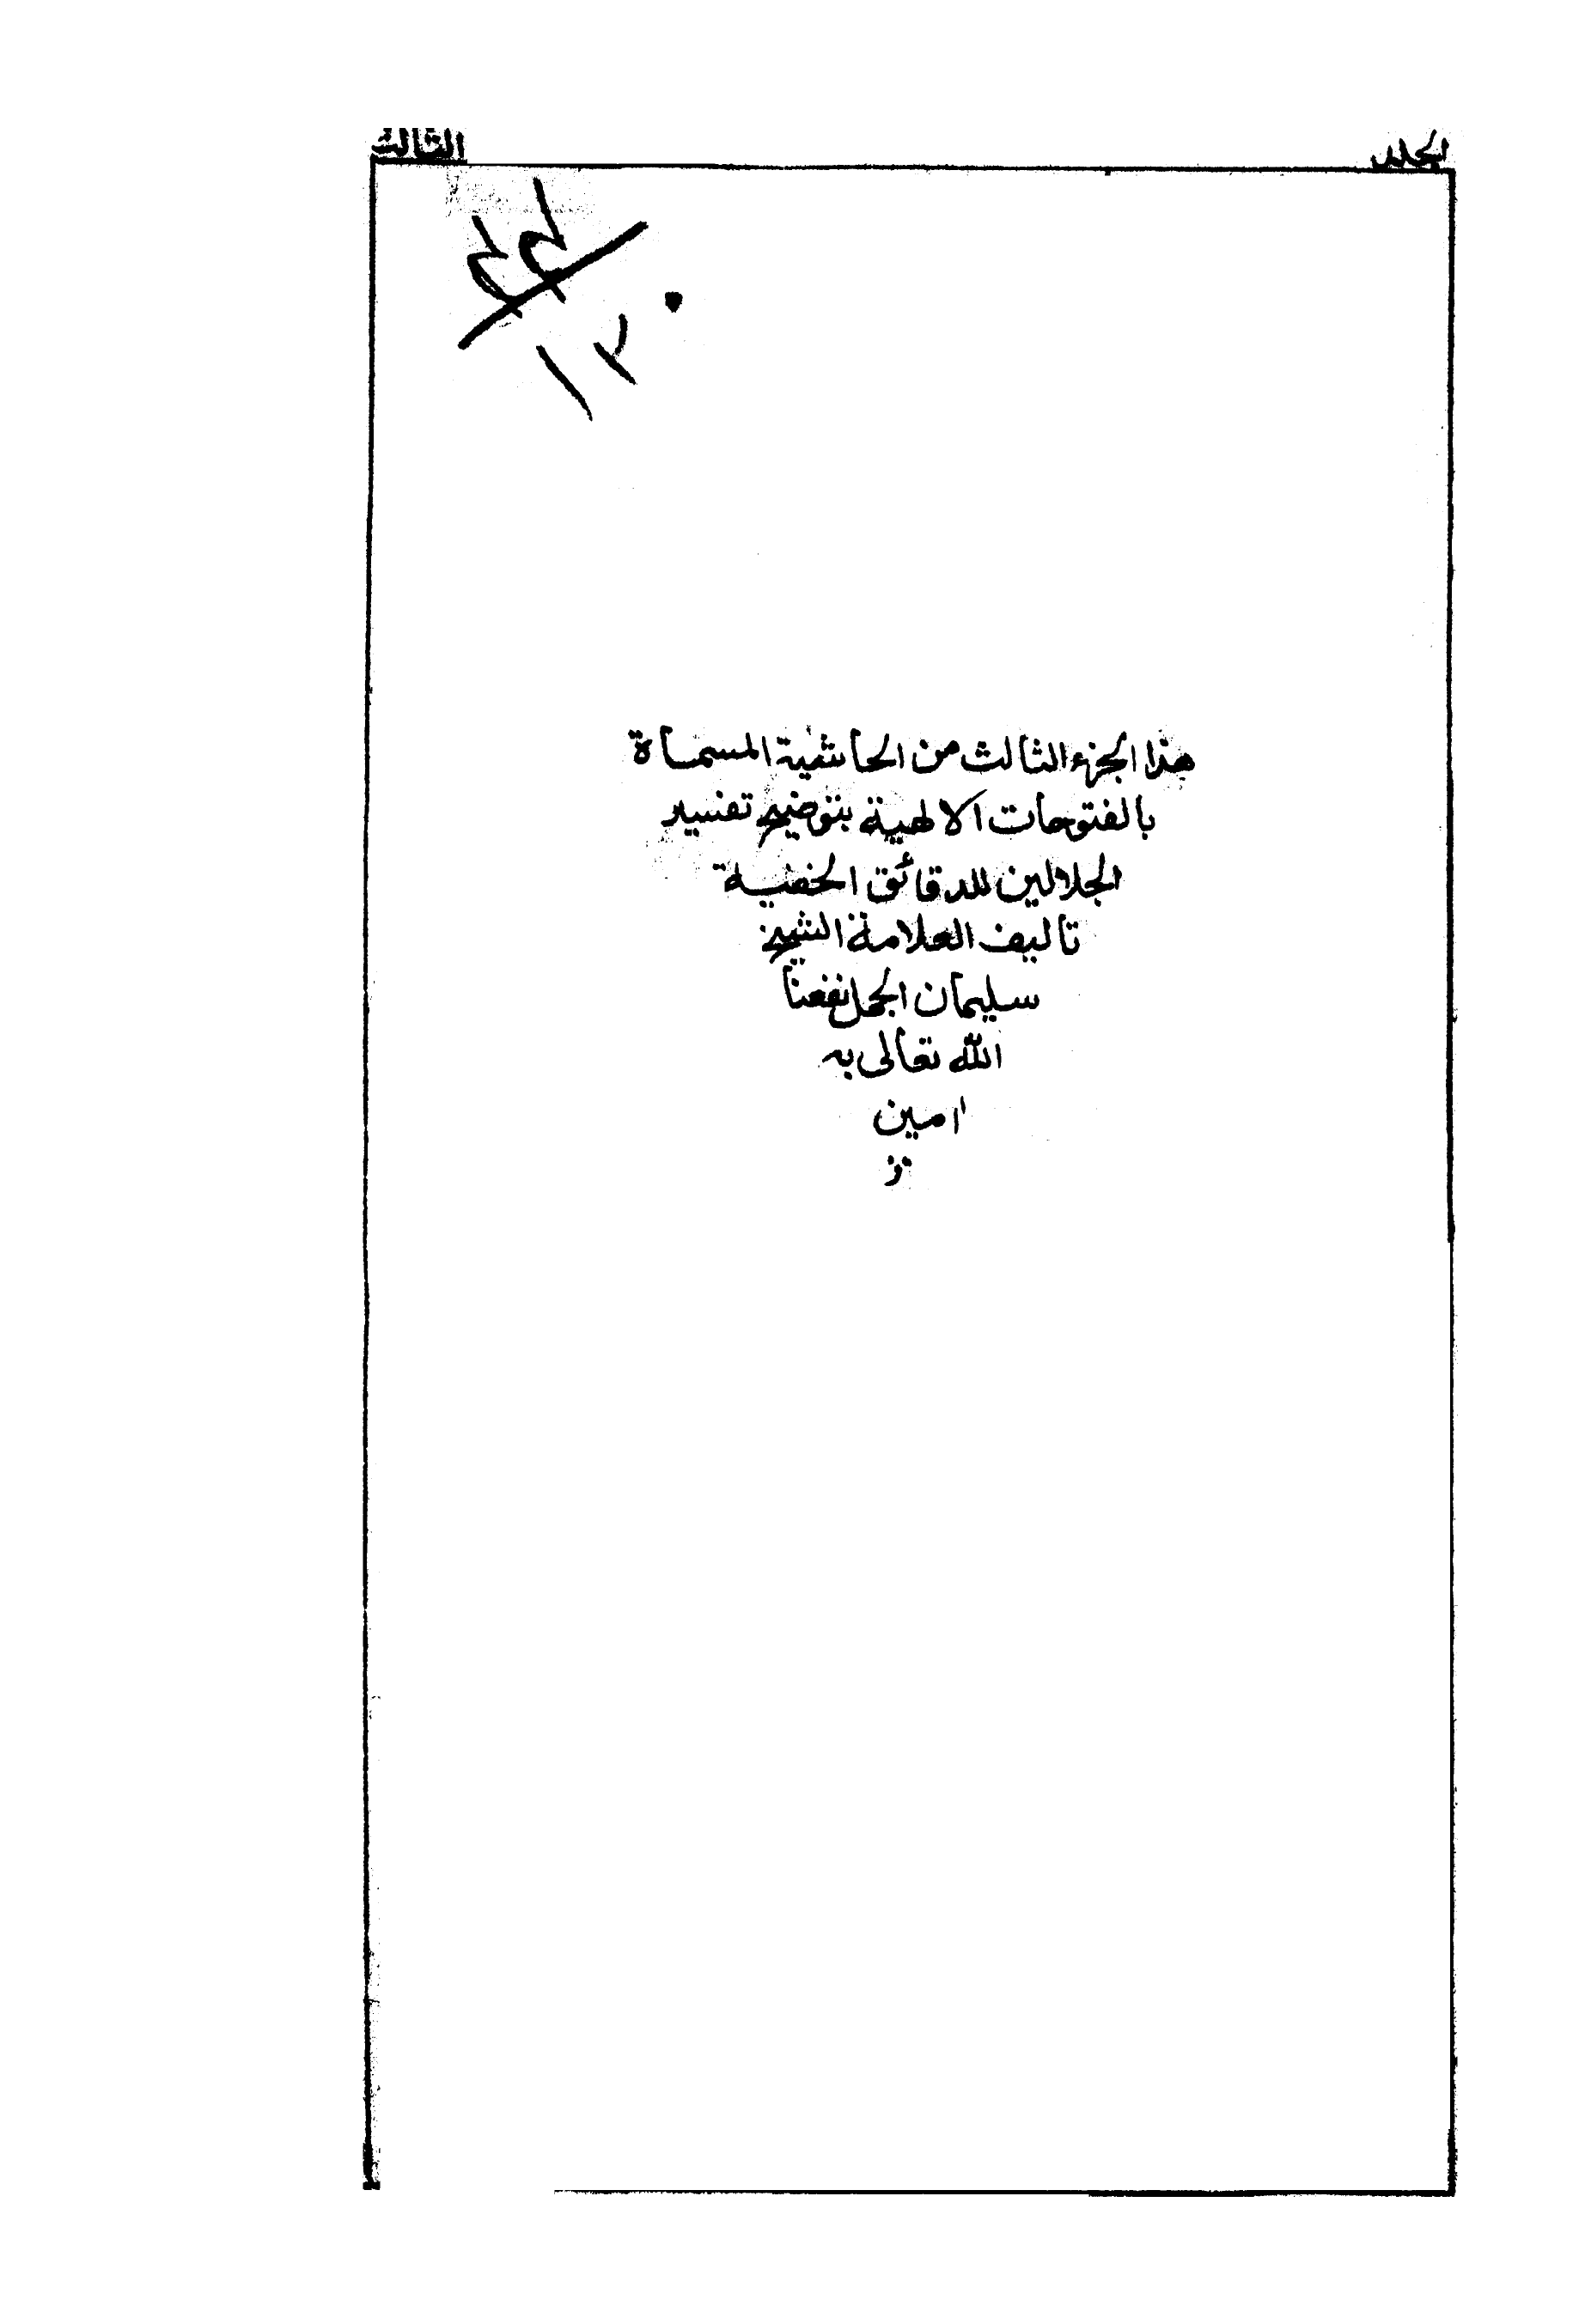 الجلد الثالث
٤٤
١٣٠
هذا الجزء الثالث من الحاشية المسماة
بالفتوحات الالهية بتوضيح تفسير
الجلالين للدقائق الخفية
تاليف العلامة الشيخ
سليمان الجمل نفعنا
الله تعالى به
امين